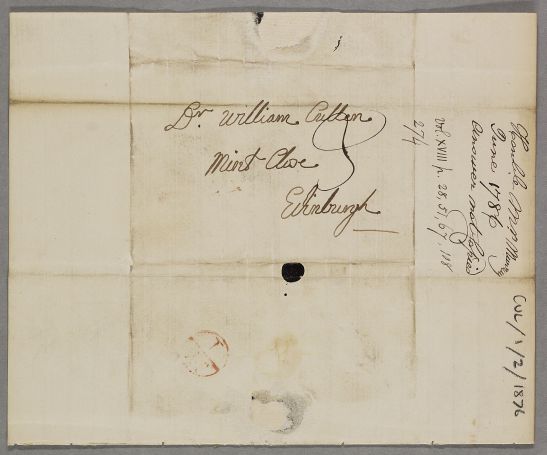 Dr. William Cullen
Mint Close
Edinburgh
Honble Mrs Murray
June 1786
Answer not copied
vol. XVIII p. 28, 51, 67, 118
274
CUL/1/2/1876